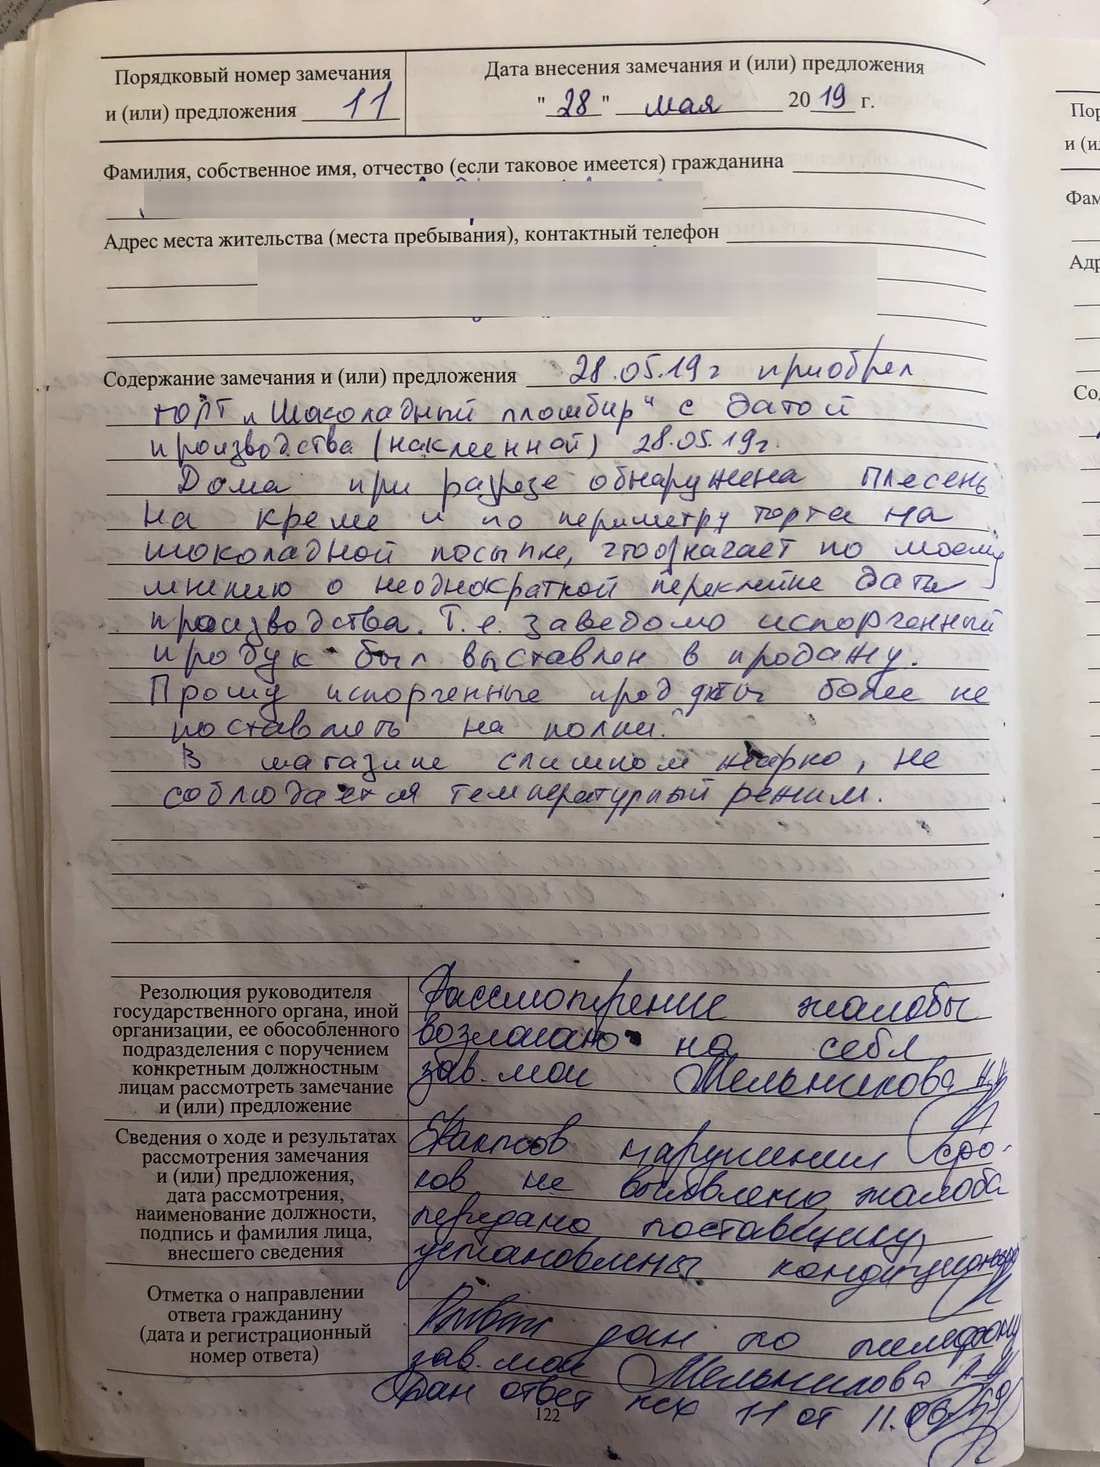 Порядковый номер замечания
и (или) предложения 11
Дата внесения замечания и (или) предложения
"28" мая 2019 г.
Фамилия, собственное имя, отчество (если таковое имеется) гражданина
Адрес места жительства (места пребывания), контактный телефон
Содержание замечания и (или) предложения 28.05.19г приобрел
торт „Шаколадный пломбир" с датой
производства (наклеенной) 28.05.19г.
Дома при разрезе обнаружена плесень
на креме и по периметру торта на
шоколадной посыпке, что означает по моему
мнению о неоднократной переклейке даты
производства. Т.е. заведомо испорченный
продук был выставлен в продажу.
Прошу испорченные продукты более не
поставлять на полки.
В магазине слишком жарко, не
соблюдается температурный режим.
Резолюция руководителя
государственного органа, иной
организации, ее обособленного
подразделения с поручением
конкретным должностным
лицам рассмотреть замечание
и (или) предложение
Рассмотрение жалобы
возлагаю на себя
зав. маг Мельникова
Сведения о ходе и результатах
рассмотрения замечания
и (или) предложения,
дата рассмотрения,
наименование должности,
подпись и фамилия лица,
внесшего сведения
Фактов нарушения сро-
ков не выявлено, жалоба
передана поставщику,
установлены кондиционеры
Отметка о направлении
ответа гражданину
(дата и регистрационный
номер ответа)
Ответ дан по телефону
зав. маг Мельникова
Дан ответ исх 11 от 11.06
122